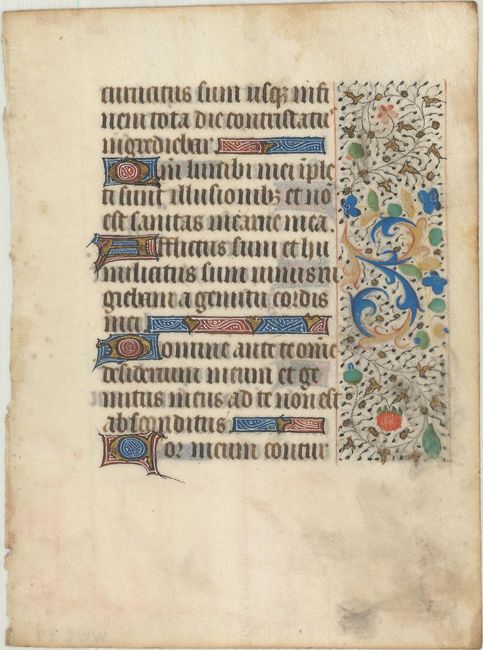 curuatus sum usqꝫ in fi
nem tota die contristatꝰ
ingrediebar.
Qm lumbi mei iple
ti sunt illusionibꝫ et nō
est sanitas in carne mea.
Afflictus sum et hu
miliatus sum nimis ru
giebam a gemitu cordis
mei
Domine ante te om̄e
desiderium meum et ge
mitus meus ad te non est
absconditus.
Cor meum contur